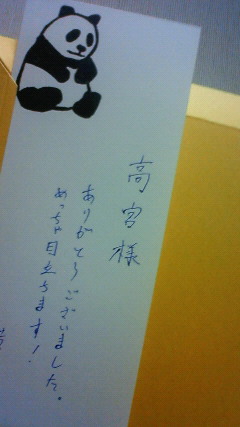 高宮様
ありがとうございました。
めっちゃ目立ちます！